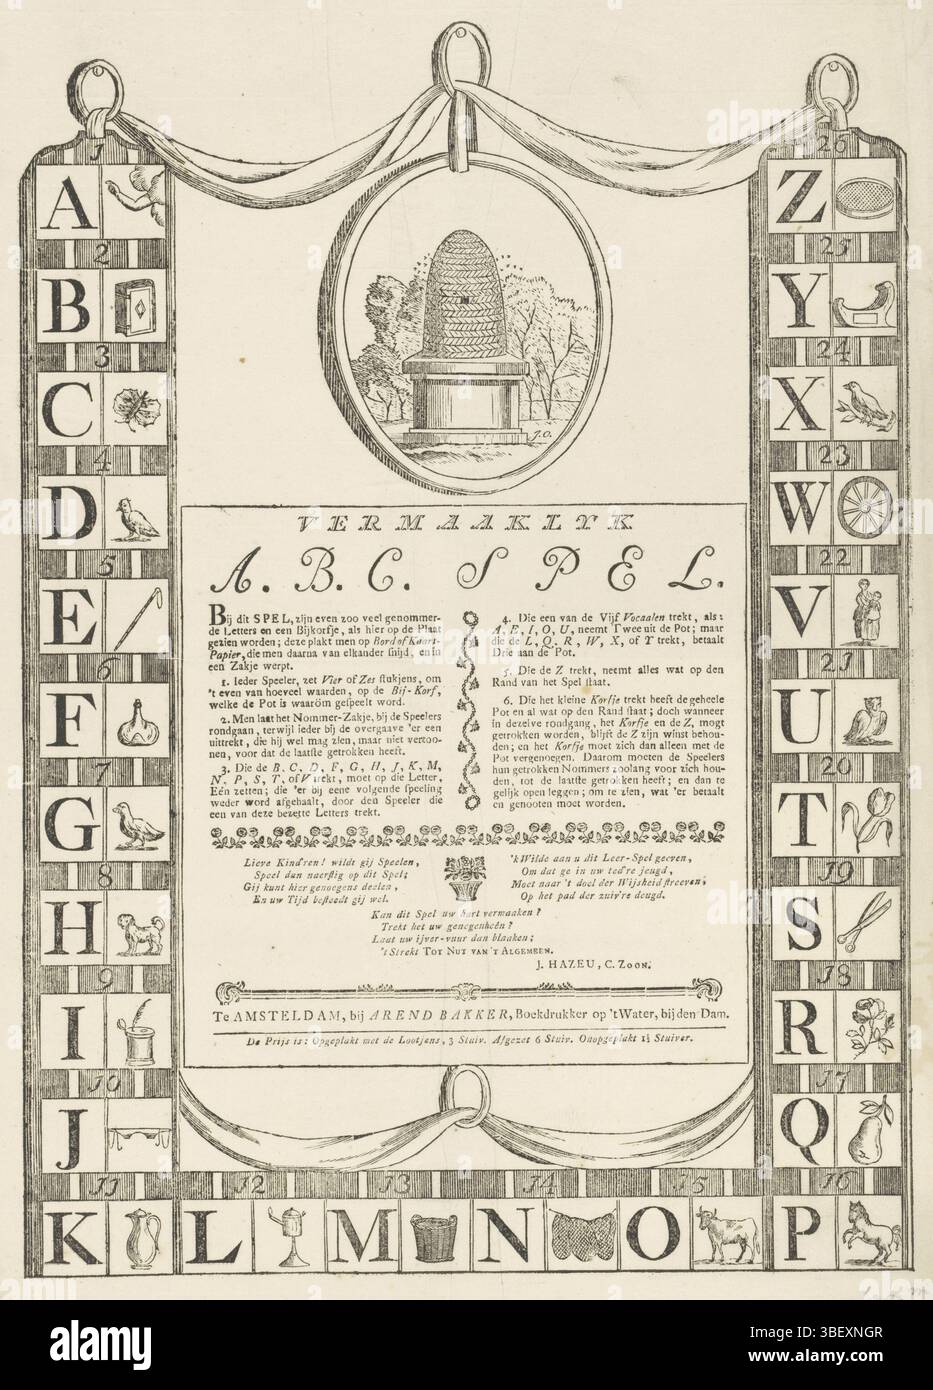 VERMAAKLYK
A. B. C. SPEL.
Bij dit SPEL, zijn even zoo veel genommer-
de Letters en een Bijkorfje, als hier op de Plaat
gezien worden; deze plakt men op Bord of Kaart-
Papier, die men daarna van elkander snijd, en in
een Zakje werpt.
1. Ieder Speeler, zet Vier of Zes stukjens, om
't even van hoeveel waarden, op de Bij-Korf,
welke de Pot is waaröm gespeeld word.
2. Men laat het Nommer-Zakje, bij de Speelers
rondgaan, terwijl ieder bij de overgaave 'er een
uittrekt, die hij wel mag zien, maar niet vertoo-
nen, voor dat de laatste getrokken heeft.
3. Die de B, C, D, F, G, H, J, K, M,
N, P, S, T, of V trekt, moet op die Letter,
Eén zetten; die 'er bij eene volgende speeling
weder word afgehaalt, door den Speeler die
een van deze bezette Letters trekt.
4. Die een van de Vijf Vocaalen trekt, als:
A, E, I, O, U, neemt Twee uit de Pot; maar
die de L, Q, R, W, X, of Y trekt, betaalt
Drie aan de Pot.
5. Die de Z trekt, neemt alles wat op den
Rand van het Spel staat.
6. Die het kleine Korfje trekt heeft de geheele
Pot en al wat op den Rand staat; doch wanneer
in dezelve rondgang, het Korfje en de Z, mogt
getrokken worden, blijft de Z zijn winst behou-
den; en het Korfje moet zich dan alleen met de
Pot vergenoegen. Daarom moeten de Speelers
hun getrokken Nommers zoolang voor zich hou-
den, tot de laatste getrokken heeft; en dan te
gelijk open leggen; om te zien, wat 'er betaalt
en genooten moet worden.
Lieve Kind'ren! wildt gij Speelen,
Speel dan naerstig op dit Spel;
Gij kunt hier genoegens deelen,
En uw Tijd besteedt gij wel.
'k Wilde aan u dit Leer-Spel geeven,
Om dat ge in uw teed're jeugd,
Moet naar 't doel der Wijsheid streeven,
Op het pad der zuiv're deugd.
Kan dit Spel uw hart vermaaken?
Trekt het uw genegenheên?
Laat uw ijver-vuur dan blaaken;
't Strekt TOT NUT VAN 'T ALGEMEEN.
J. HAZEU, C. Zoon.
Te AMSTELDAM, bij AREND BAKKER, Boekdrukker op 't Water, bij den Dam.
De Prijs is: Opgeplakt met de Lootjens, 3 Stuiv. Afgezet 6 Stuiv. Onopgeplakt 1½ Stuiver.
J.O.
1
A
2
B
3
C
4
D
5
E
6
F
7
G
8
H
9
I
10
J
11
K
12
L
13
M
14
N
15
O
16
P
17
Q
18
R
19
S
20
T
21
U
22
V
23
W
24
X
25
Y
26
Z
alamy
Image ID: 3BEXNGR
www.alamy.com